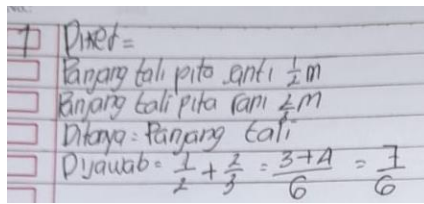 1 Diket =
Panjang tali pita santi 1/2 m
Panjang tali pita rani 2/3 m
Ditanya = Panjang tali
Dijawab = 1/2 + 2/3 = 3+4/6 = 7/6